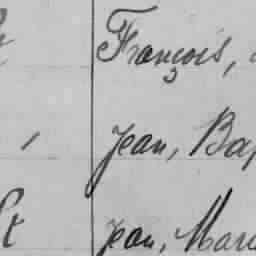 François,
Jean, Bap
Jean, Mari